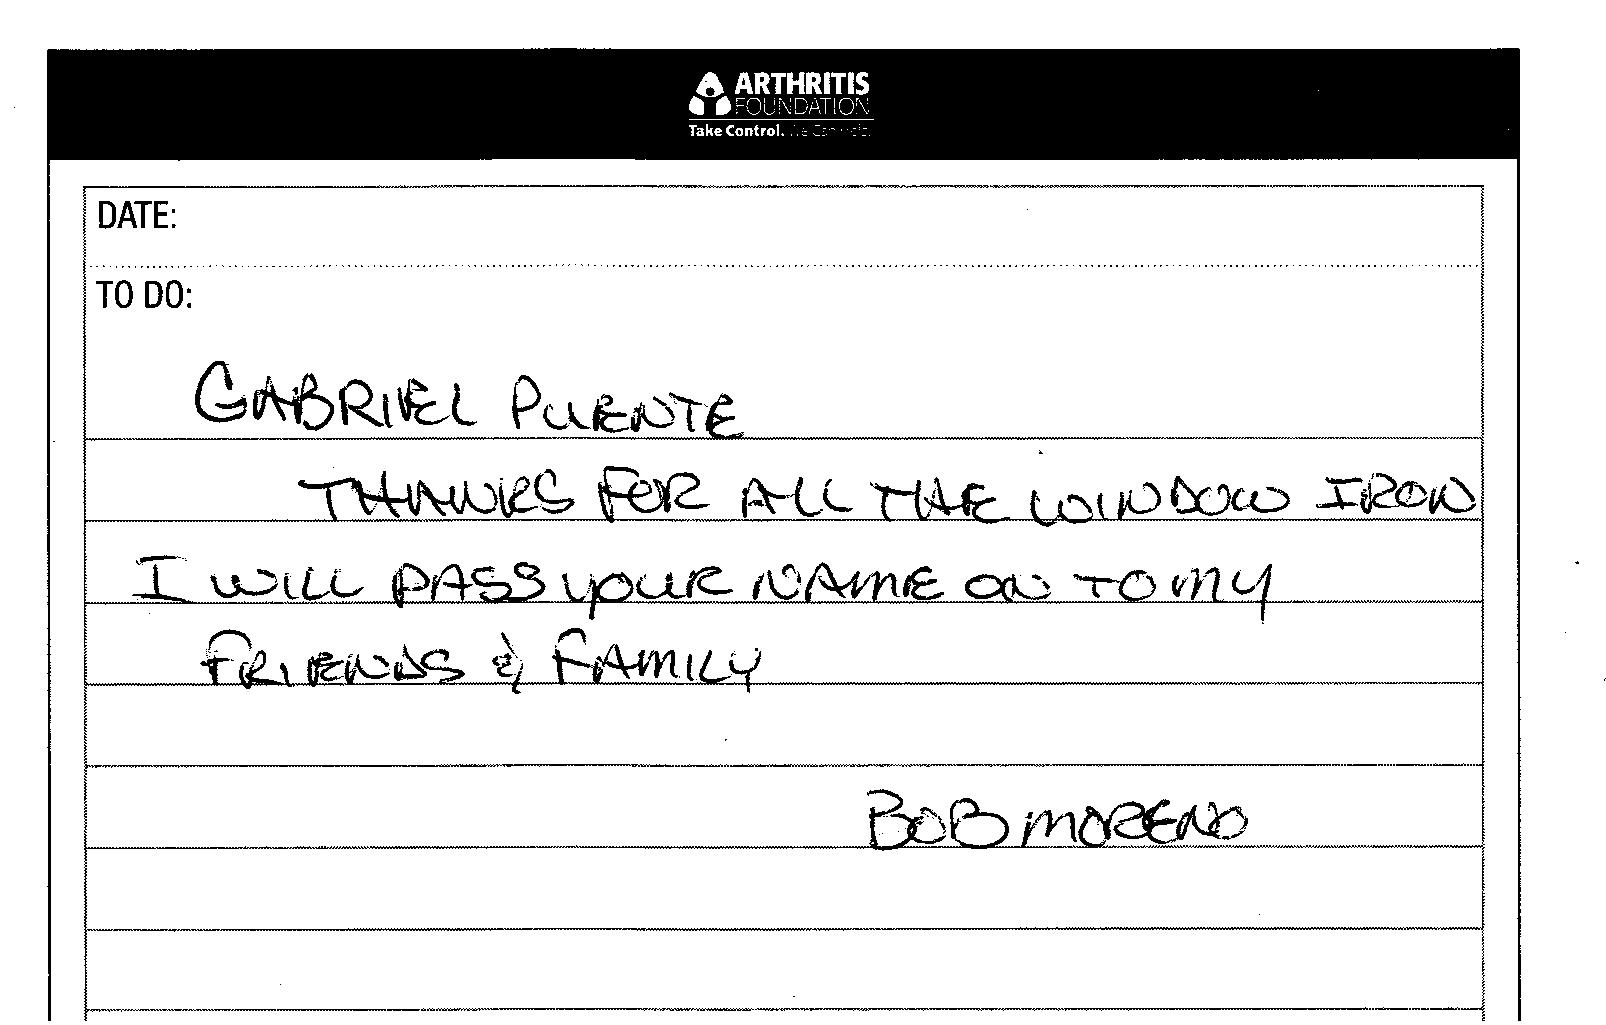 ARTHRITIS
FOUNDATION
Take Control. We Can Help.
DATE:
TO DO:
GABRIEL PUENTE
THANKS FOR ALL THE WINDOW IRON
I WILL PASS YOUR NAME ON TO MY
FRIENDS & FAMILY
BOB MORENO